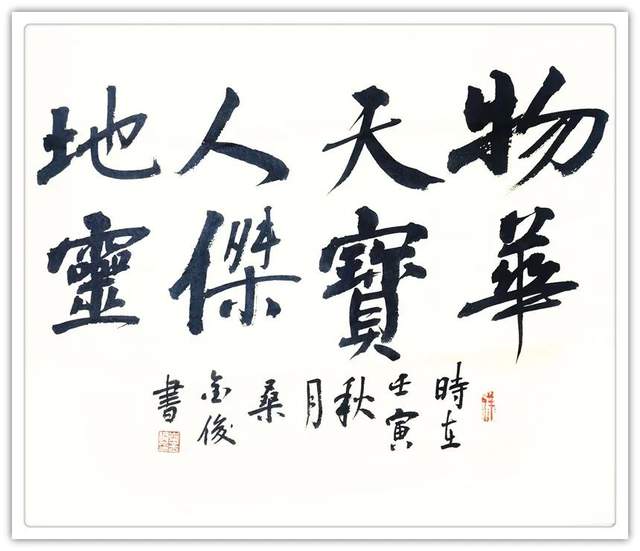 物華
天寶
人傑
地靈
時在
壬寅
秋
月
桑
金俊
書